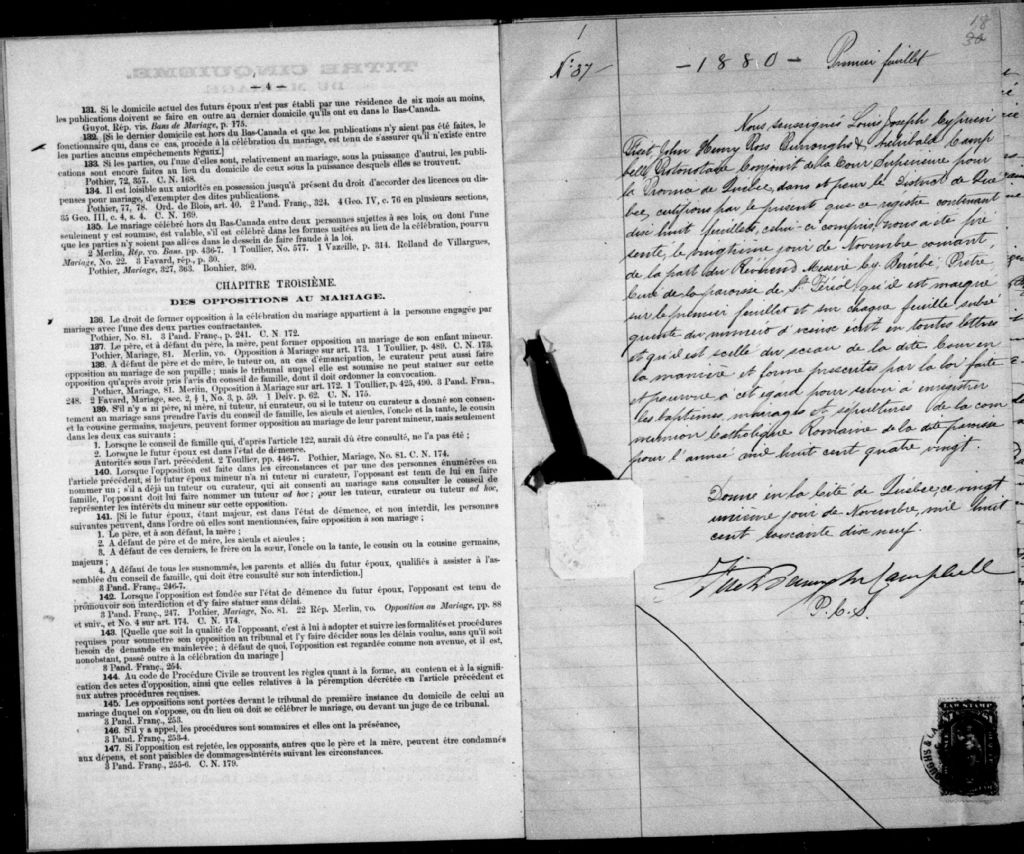 — 4 —
131. Si le domicile actuel des futurs époux n'est pas établi par une résidence de six mois au moins,
les publications doivent se faire en outre au dernier domicile qu'ils ont eu dans le Bas-Canada.
Guyot, Rép. vis. Bans de Mariage, p. 175.
132. [Si le dernier domicile est hors du Bas-Canada et que les publications n'y aient pas été faites, le
fonctionnaire qui, dans ce cas, procède à la célébration du mariage, est tenu de s'assurer qu'il n'existe entre
les parties aucuns empêchements légaux.]
133. Si les parties, ou l'une d'elles sont, relativement au mariage, sous la puissance d'autrui, les publi-
cations sont encore faites au lieu du domicile de ceux sous la puissance desquels elles se trouvent.
Pothier, 72, 357. C. N. 168.
134. Il est loisible aux autorités en possession jusqu'à présent du droit d'accorder des licences ou dis-
penses pour mariage, d'exempter des dites publications.
Pothier, 77, 78. Ord. de Blois, art. 40. 2 Pand. Franç., 324. 4 Geo. IV, c. 76 en plusieurs sections,
35 Geo. III, c. 4, s. 4. C. N. 169.
135. Le mariage célébré hors du Bas-Canada entre deux personnes sujettes à ses lois, ou dont l'une
seulement y est soumise, est valable, s'il est célébré dans les formes usitées au lieu de la célébration, pourvu
que les parties n'y soient pas allées dans le dessein de faire fraude à la loi.
2 Merlin, Rép. vo. Bans, pp. 436-7. 1 Toullier, No. 577. 1 Vazeille, p. 314. Rolland de Villargues,
Mariage, No. 22. 3 Favard, rép., p. 30.
Pothier, Mariage, 327, 363. Bouhier, 390.
CHAPITRE TROISIÈME.
DES OPPOSITIONS AU MARIAGE.
136. Le droit de former opposition à la célébration du mariage appartient à la personne engagée par
mariage avec l'une des deux parties contractantes.
Pothier, No. 81. 3 Pand. Franç., p. 241. C. N 172.
137. Le père, et à défaut du père, la mère, peut former opposition au mariage de son enfant mineur.
Pothier, Mariage, 81. Merlin, vo. Opposition à Mariage sur art. 173. 1 Toullier, p. 489. C. N. 173.
138. A défaut de père et de mère, le tuteur ou, au cas d'émancipation, le curateur peut aussi faire
opposition au mariage de son pupille; mais le tribunal auquel elle est soumise ne peut statuer sur cette
opposition qu'après avoir pris l'avis du conseil de famille, dont il doit ordonner la convocation.
Pothier, Mariage, 81. Merlin, Opposition à Mariage sur art. 172. 1 Toullier, p. 425, 490. 3 Pand. Fran.,
248. 2 Favard, Mariage, sec. 2, § 1, No. 3, p. 59. 1 Delv. p. 62. C. N. 175.
139. S'il n'y a ni père, ni mère, ni tuteur, ni curateur, ou si le tuteur ou curateur a donné son consen-
tement au mariage sans prendre l'avis du conseil de famille, les aïeuls et aïeules, l'oncle et la tante, le cousin
et la cousine germains, majeurs, peuvent former opposition au mariage de leur parent mineur, mais seulement
dans les deux cas suivants :
1. Lorsque le conseil de famille qui, d'après l'article 122, aurait dû être consulté, ne l'a pas été ;
2. Lorsque le futur époux est dans l'état de démence.
Autorités sous l'art. précédent. 2 Toullier, pp. 446-7. Pothier, Mariage, No. 81. C. N. 174.
140. Lorsque l'opposition est faite dans les circonstances et par une des personnes énumérées en
l'article précédent, si le futur époux mineur n'a ni tuteur ni curateur, l'opposant est tenu de lui en faire
nommer un ; s'il a déjà un tuteur ou curateur, qui ait consenti au mariage sans consulter le conseil de
famille, l'opposant doit lui faire nommer un tuteur ad hoc ; pour les tuteur, curateur ou tuteur ad hoc,
représenter les intérêts du mineur sur cette opposition.
141. [Si le futur époux, étant majeur, est dans l'état de démence, et non interdit, les personnes
suivantes peuvent, dans l'ordre où elles sont mentionnées, faire opposition à son mariage ;
1. Le père, et à son défaut, la mère ;
2. A défaut de père et de mère, les aïeuls et aïeules ;
3. A défaut de ces derniers, le frère ou la sœur, l'oncle ou la tante, le cousin ou la cousine germains,
majeurs ;
4. A défaut de tous les susnommés, les parents et alliés du futur époux, qualifiés à assister à l'as-
semblée du conseil de famille, qui doit être consulté sur son interdiction.]
3 Pand. Franç., 246-7.
142. Lorsque l'opposition est fondée sur l'état de démence du futur époux, l'opposant est tenu de
promouvoir son interdiction et d'y faire statuer sans délai.
3 Pand. Franç., 247. Pothier, Mariage, No. 81. 22 Rép. Merlin, vo. Opposition au Mariage, pp. 88
et suiv., et No. 4 sur art. 174. C. N. 174.
143. [Quelle que soit la qualité de l'opposant, c'est à lui à adopter et suivre les formalités et procédures
requises pour soumettre son opposition au tribunal et l'y faire décider sous les délais voulus, sans qu'il soit
besoin de demande en mainlevée ; à défaut de quoi, l'opposition est regardée comme non avenue, et il est,
nonobstant, passé outre à la célébration du mariage]
3 Pand. Franç., 254.
144. Au code de Procédure Civile se trouvent les règles quant à la forme, au contenu et à la signifi-
cation des actes d'opposition, ainsi que celles relatives à la péremption décrétée en l'article précédent et
aux autres procédures requises.
145. Les oppositions sont portées devant le tribunal de première instance du domicile de celui au
mariage duquel on s'oppose, ou du lieu où doit se célébrer le mariage, ou devant un juge de ce tribunal.
3 Pand. Franç., 253.
146. S'il y a appel, les procédures sont sommaires et elles ont la préséance,
3 Pand. Franç., 253-4.
147. Si l'opposition est rejetée, les opposants, autres que le père et la mère, peuvent être condamnés
aux dépens, et sont paisibles de dommages-intérêts suivant les circonstances.
3 Pand. Franç., 255-6. C. N. 179.
1
No. 37
18
30
— 1880 — Premier feuillet
Nous, soussignés Louis Joseph Cyprien
Fiset, John Henry Ross Burroughs & Archibald Camp
bell, Protonotaire Conjoint de la Cour Supérieure pour
la Province de Québec, dans et pour le District de Qué
bec, certifions par le présent que ce registre contenant
dix huit feuillets, celui-ci compris, nous a été pré
senté, le vingtième jour de Novembre courant,
de la part du Révérend Messire Cy. Bérubé, Prêtre
Curé de la paroisse de St. Féréol; qu'il est marqué
sur le premier feuillet et sur chaque feuille subsé
quente du numéro d'iceux écrit en toutes lettres
et qu'il est scellé du sceau de la dite Cour en
la manière et forme prescrites par la loi faite
et pourvue à cet égard pour servir à enregistrer
les baptêmes, mariages et sépultures de la com
munion Catholique Romaine de la dite paroisse
pour l'année mil huit cent quatre vingt.
Donné en la Cité de Québec, ce vingt
unième jour de Novembre, mil huit
cent soixante dix neuf.
Fiset Burroughs Campbell
P. C. S.
LAW STAMP